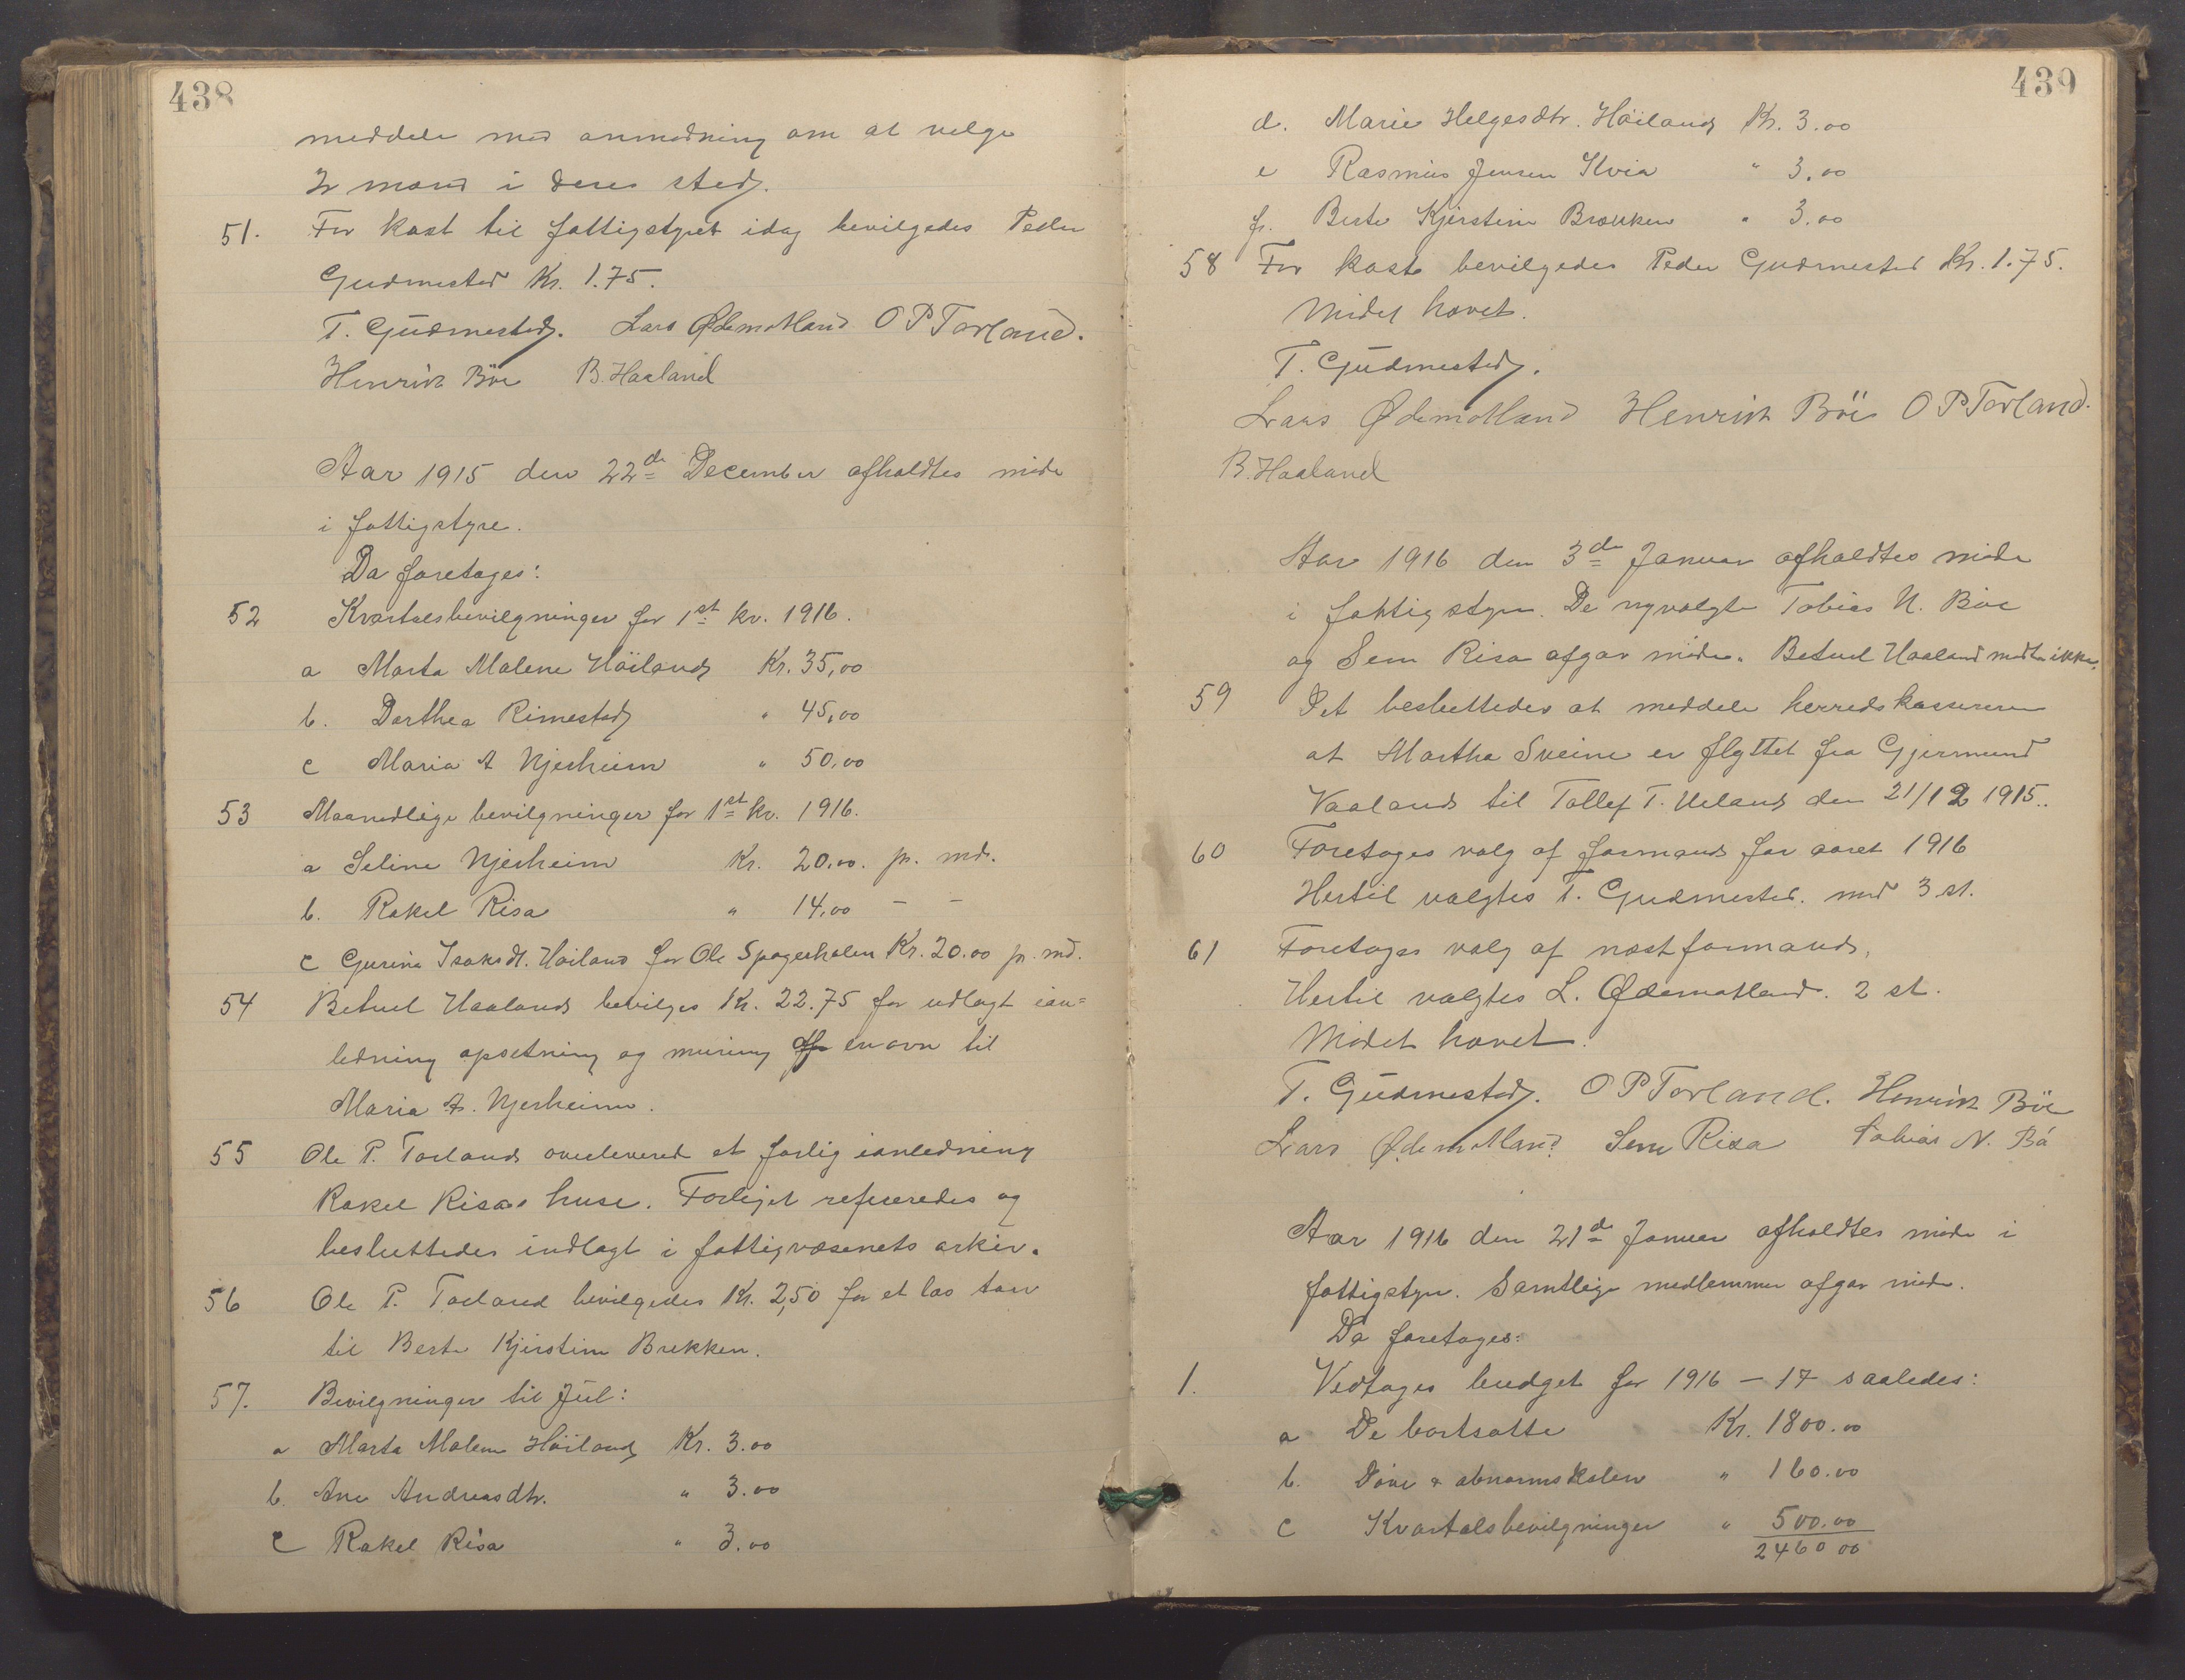 438
meddele med anmodning om at velge
2 mænd i deres sted.
51. For kost til fattigstyret idag bevilgedes Peder
Gudmestad Kr. 1.75.
T. Gudmestad. Lars Ødemotland O P Torland.
Henrik Böe B. Haaland
Aar 1915 den 22de December afholdtes möde
i fattigstyre.
Da foretoges:
52 Kvartalsbevilgninger for 1st kv. 1916.
a Marta Malene Höiland Kr. 35,00
b. Dorthea Rimestad " 45,00
c Maria A Njerheim " 50,00
53 Maanedlige bevilgninger for 1st kv. 1916.
a Seline Njerheim Kr. 20,00. pr. md.
b. Rakel Risa " 14,00 - -
c Gurine Isaksdt. Höiland for Ole Spagerholen Kr. 20.00 pr. md.
54 Betuel Haaland bevilges Kr. 22.75 for udlagt ian=
ledning opsetning og muring af en ovn til
Maria A. Njerheim.
55 Ole P. Torland overleverede et forlig ianledning
Rakel Risas huse. Forliget refereredes og
besluttedes indlagt i fattigvæsenets arkiv.
56 Ole P. Torland bevilgedes Kr. 2,50 for et las torv
til Berte Kjirstine Brekken.
57. Bevilgninger til Jul:
a Marta Malene Höiland Kr. 3.00
b. Ane Andreasdtr. " 3.00
c Rakel Risa " 3.00
439
d. Marie Helgesdtr. Höiland Kr. 3.00
e Rasmus Jensen Kvia " 3.00
f. Berte Kjirstine Brækken " 3.00
58 For kost bevilgedes Peder Gudmestad Kr. 1.75.
Mödet hævet.
T. Gudmestad.
Lars Ødemotland Henrik Böe O P Torland.
B. Haaland
Aar 1916 den 3de Januar afholdtes möde
i fattigstyre. De nyvalgte Tobias N. Böe
og Sem Risa afgav möde. Betuel Haaland mødte ikke.
59 Det besluttedes at meddele herredskassereren
at Martha Sveine er flyttet fra Gjermund
Vaaland til Tollef T. Ueland den 21/12 1915.
60 Foretoges valg af formand for aaret 1916
Hertil valgtes T. Gudmestad. med 3 st.
61 Foretoges valg af næstformand.
Hertil valgtes L. Ødemotland. 2 st.
Mödet hævet.
T. Gudmestad. O P Torland. Henrik Böe
Lars Ødemotland Sem Risa Tobias N. Bö
Aar 1916 den 21de Januar afholdtes möde i
fattigstyre. Samtlige medlemmer afgav möde.
Da foretoges:
1. Vedtages budget for 1916 - 17 saaledes:
a De bortsatte Kr. 1800.00
b. Döve & abnormskolen " 160.00
c Kvartalsbevilgninger " 500.00
2460 00